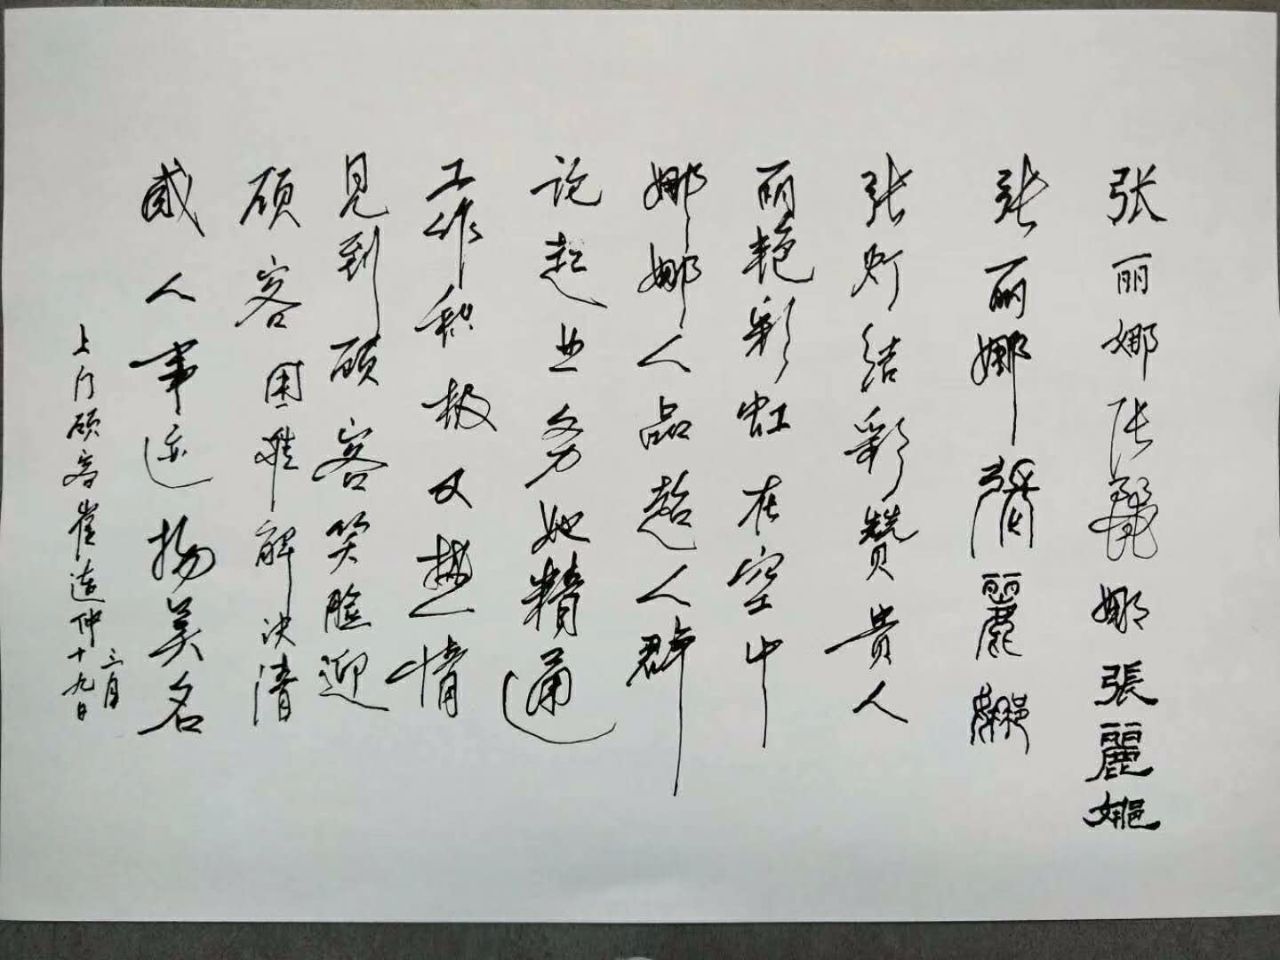 张丽娜张麗娜張麗娜
张丽娜張麗娜
张灯结彩赞贵人
丽艳彩虹在空中
娜娜人品超人群
论起业务她精通
工作积极又热情
见到顾客笑脸迎
顾客困难解决清
感人事迹扬美名
上门顾客崔连仲
三月
十九日